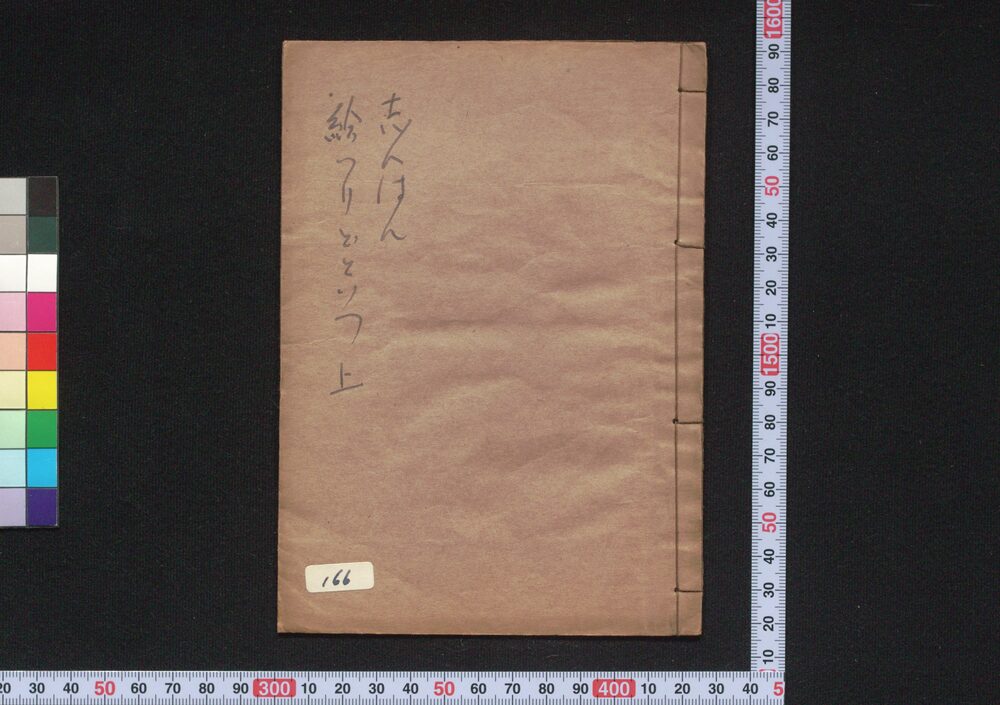 志んはん
絵つりどといつ 上
166
1600 90 80 70 60 50 40 30 20 10 1500 90 80 70 60 50 40 30 20 10
20 30 40 50 60 70 80 90 300 10 20 30 40 50 60 70 80 90 400 10 20 30 40 5